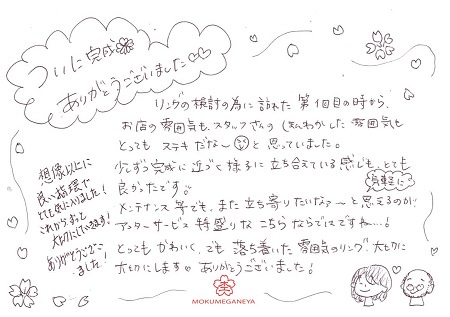 ついに完成
ありがとうございました
リングの検討の為に訪れた 第1回目の時から、
お店の雰囲気も、スタッフさんのほんわかした雰囲気も
とっても ステキだな〜と思っていました。
少しずつ完成に近づく様子に立ち会えている感じも、とても
良かったです。
メンテナンス等でも、また気軽に立ち寄りたいな〜と思えるのが
アフターサービス 特盛りな こちら ならでは ですネ…!
とっても かわいく、でも 落ち着いた 雰囲気のリング、大切に
大切にします ありがとうございました!
想像以上に
良い指環で
とても気に入りました!
これから、ずっと
大切にしていきます!
ありがとうござい
ました!
MOKUMEGANEYA